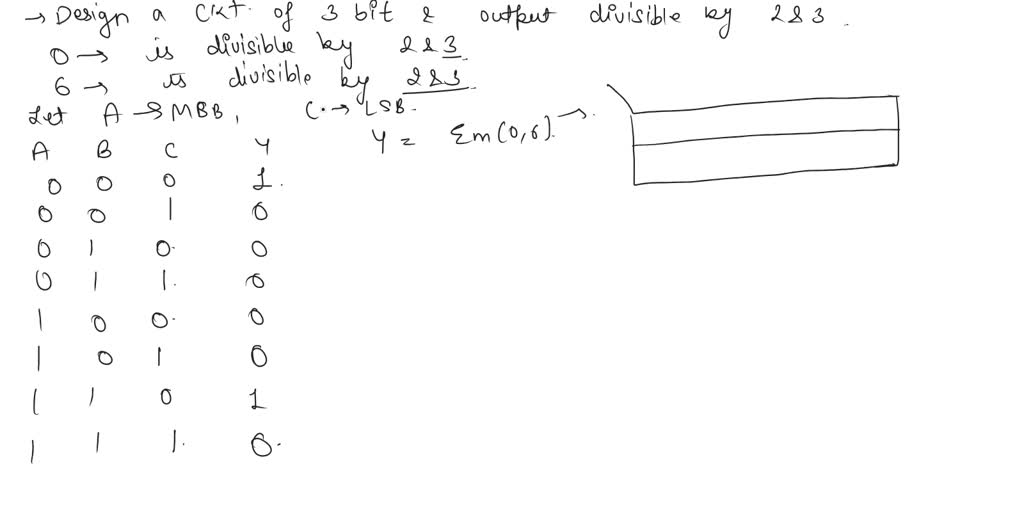 → Design a Ckt. of 3 bit & output divisible by 2 & 3.
0 → is divisible by 2 & 3
6 → is divisible by 2 & 3
Let A → MBB, C. → LSB.
Y = Σm(0,6). →.
A B C Y
0 0 0 1.
0 0 1 0
0 1 0. 0
0 1 1. 0
1 0 0. 0
1 0 1 0
1 1 0 1
1 1 1. 0.